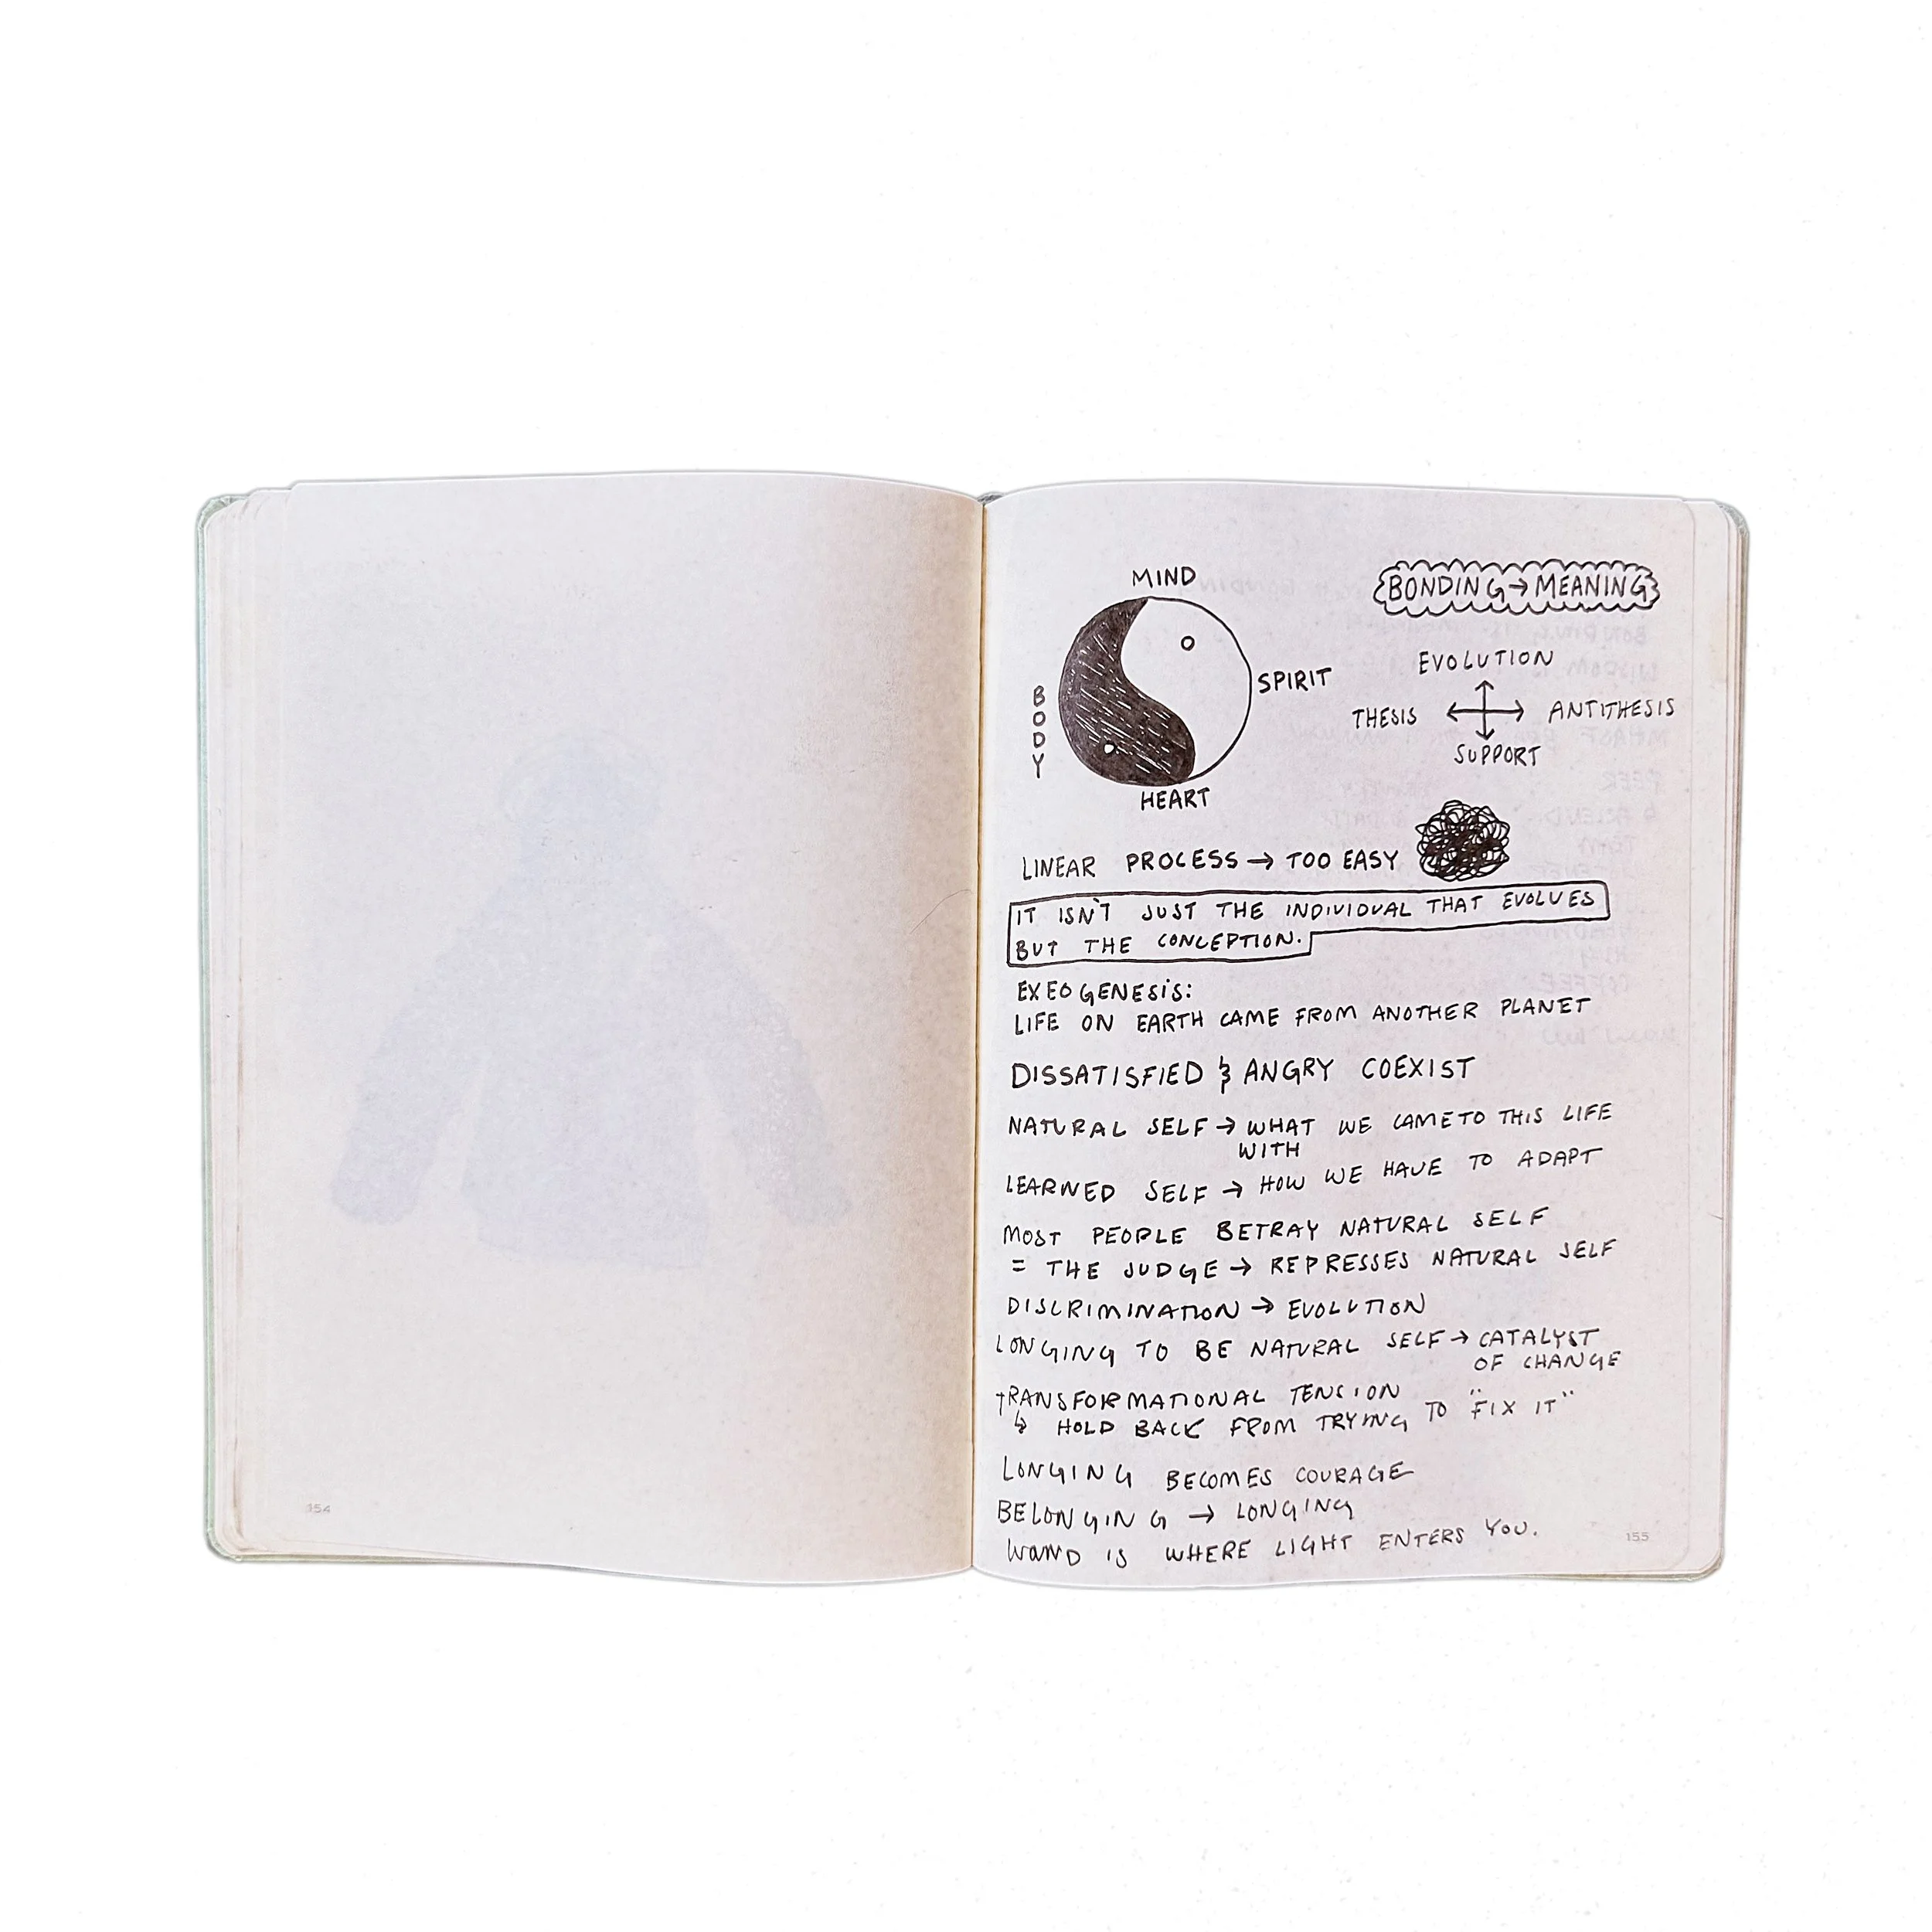 MIND
BONDING → MEANING
BODY
SPIRIT
HEART
EVOLUTION
THESIS ANTITHESIS
SUPPORT
LINEAR PROCESS → TOO EASY
IT ISN'T JUST THE INDIVIDUAL THAT EVOLVES
BUT THE CONCEPTION.
EXEOGENESIS:
LIFE ON EARTH CAME FROM ANOTHER PLANET
DISSATISFIED & ANGRY COEXIST
NATURAL SELF → WHAT WE CAME TO THIS LIFE
WITH
LEARNED SELF → HOW WE HAVE TO ADAPT
MOST PEOPLE BETRAY NATURAL SELF
= THE JUDGE → REPRESSES NATURAL SELF
DISCRIMINATION → EVOLUTION
LONGING TO BE NATURAL SELF → CATALYST
OF CHANGE
TRANSFORMATIONAL TENSION
↳ HOLD BACK FROM TRYING TO "FIX IT"
LONGING BECOMES COURAGE
BELONGING → LONGING
IS WHERE LIGHT ENTERS YOU.
154
155